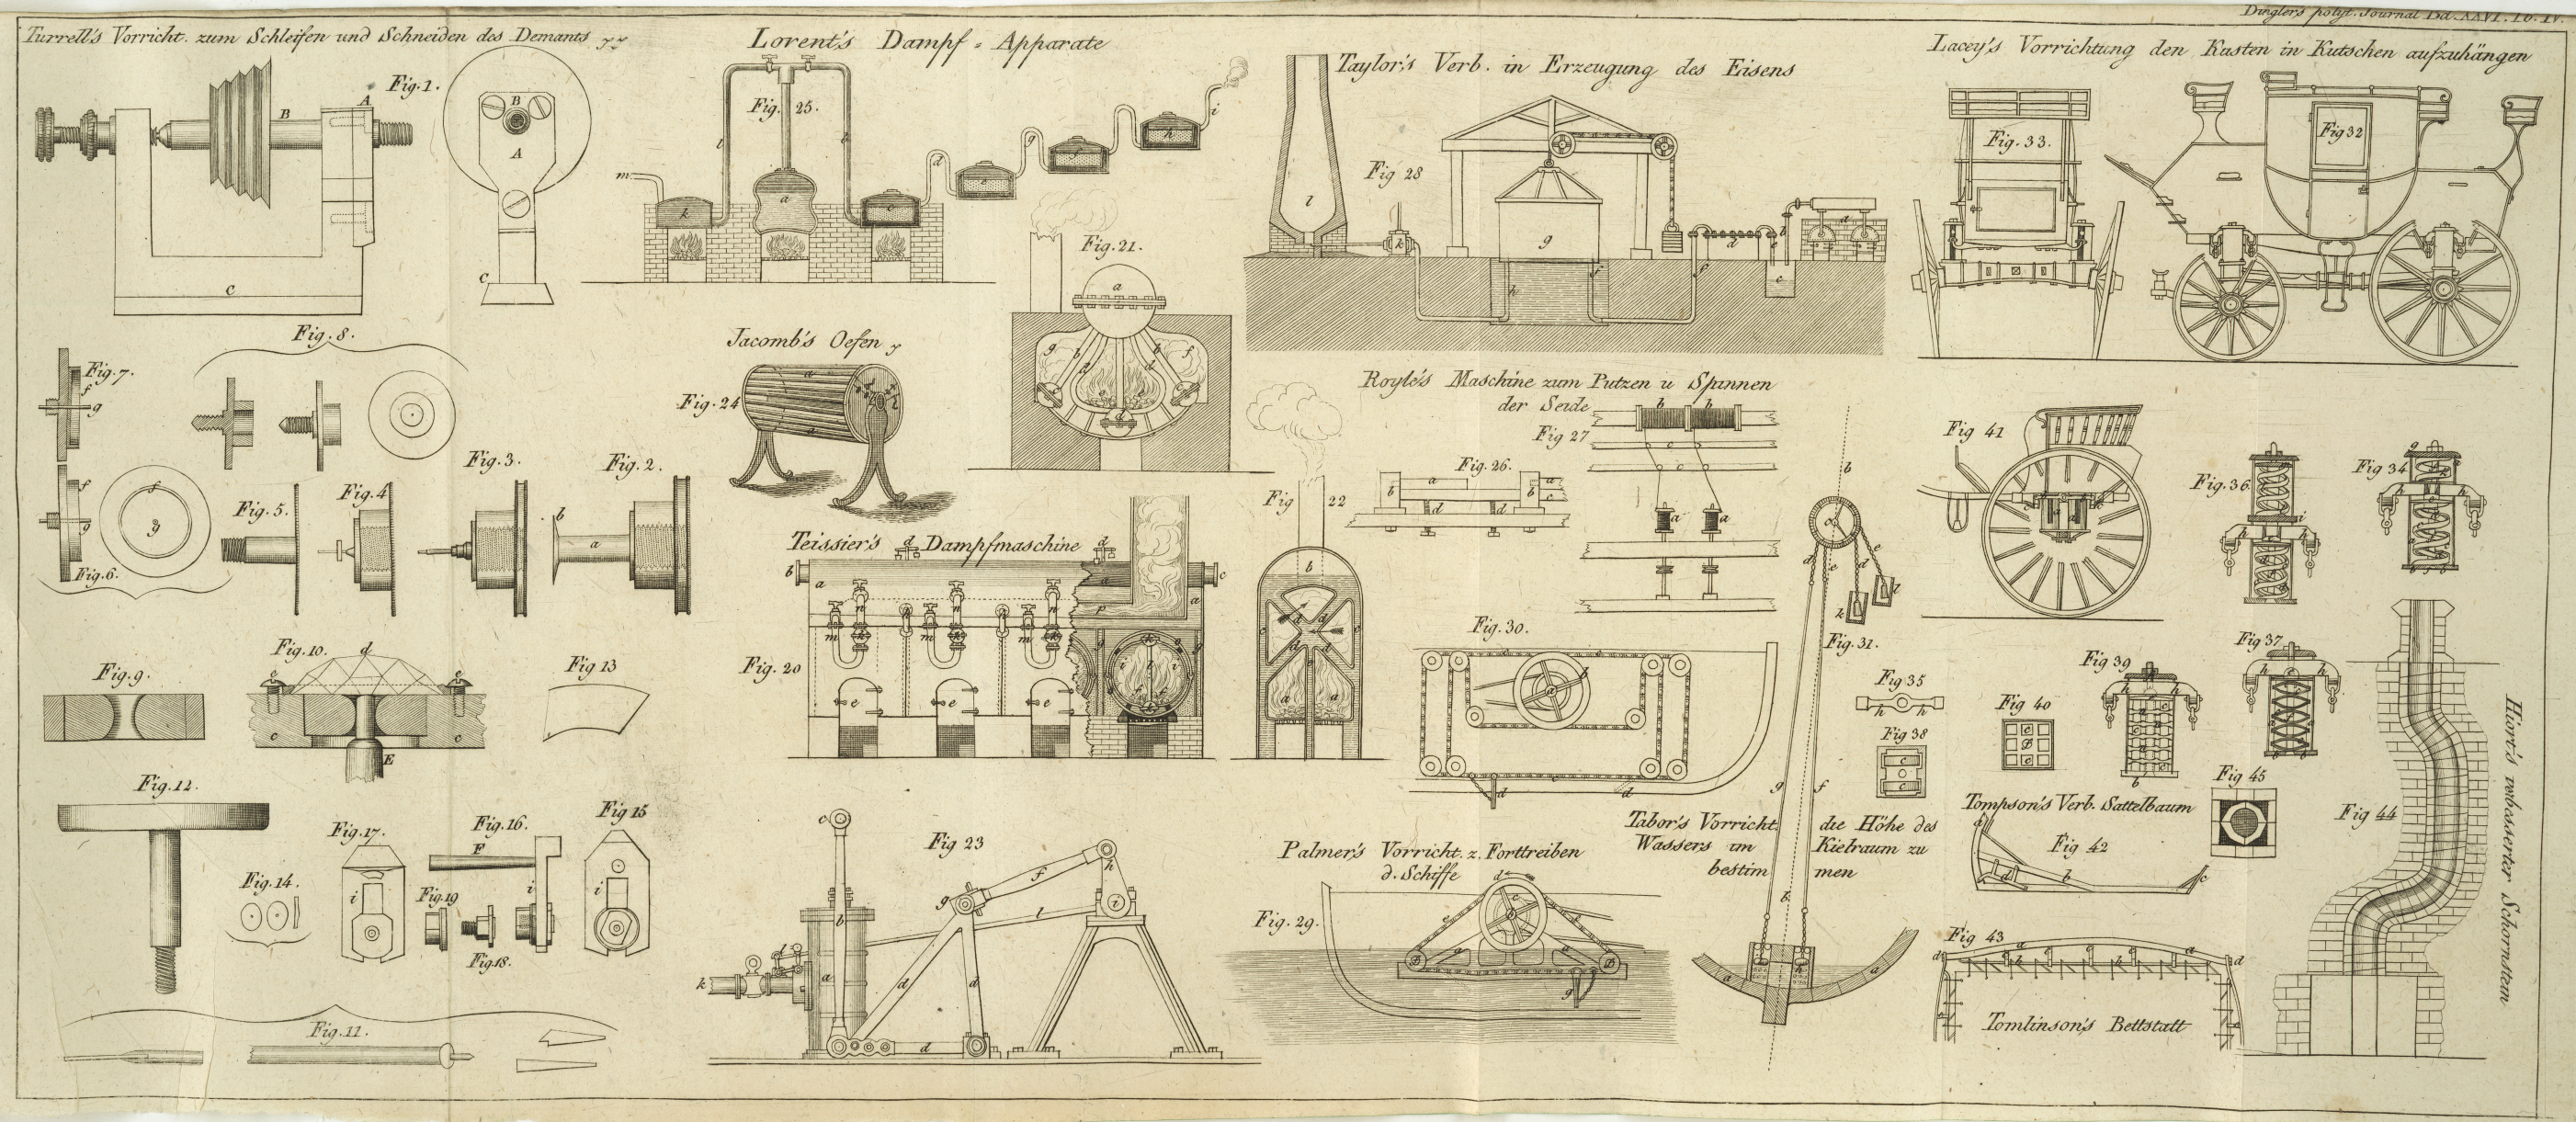 Dingler's polyt. Journal Bd. XXVI. Tb. IV.
Turrell's Vorricht. zum Schleifen und Schneiden des Demants
Fig. 1.
A
B
B
A
C
C
Fig. 8.
Fig. 7.
f
g
Fig. 3.
Fig. 2.
Fig. 4
Fig. 5.
b
a
f
g
f
g
Fig. 6.
Fig. 9.
Fig. 10.
d
e
e
c
c
E
Fig 13
Fig. 12.
Fig. 17.
Fig. 16.
Fig 15
F
i
i
i
Fig. 14.
Fig. 19
Fig. 18.
Fig. 11.
Lorent's Dampf = Apparate
Fig. 25.
l
b
m
k
a
c
d
e
g
f
h
i
Fig. 21.
a
g
b
b
f
d
d
c
Jacomb's Oefen
Fig. 24
a
Teissier's Dampfmaschine
d
d
b
a
a
c
a
n
n
n
p
m
k
m
k
m
h
h
Fig. 20
e
e
e
g
g
i
l
i
Fig 22
b
c
c
d
d
d
d
a
a
Fig 23
c
b
a
g
f
h
l
i
d
d
d
k
Taylor's Verb. in Erzeugung des Eisens
Fig 28
l
k
g
h
f
f
d
e
b
a
c
Royle's Maschine zum Putzen u Spannen
der Seide
Fig 27
b
b
c
c
a
a
Fig. 26.
a
b
b
a
c
d
d
Fig. 30.
c
c
a
b
c
d
d
Palmer's Vorricht. z. Forttreiben
d. Schiffe
Fig. 29.
d
c
e
e
a
a
b
b
g
b
a
d
e
d
e
k
l
Fig. 31.
g
f
Tabor's Vorricht. die Höhe des
Wassers im Kielraum zu
bestim men
b
h
a
a
Lacey's Vorrichtung den Kasten in Kutschen aufzuhängen
Fig. 33.
Fig 32
Fig 41
Fig. 36.
i
h
h
Fig 34
g
h
h
Fig 35
h
h
Fig 38
c
c
Fig 40
c
D
c
Fig 39
h
h
b
Fig 37
h
h
b
b
Tompson's Verb. Sattelbaum
Fig 42
a
d
b
c
Fig 45
Fig 44
Hiort's verbesserter Schornstein
Fig 43
a
a
d
d
b
b
c
c
c
Tomlinson's Bettstatt